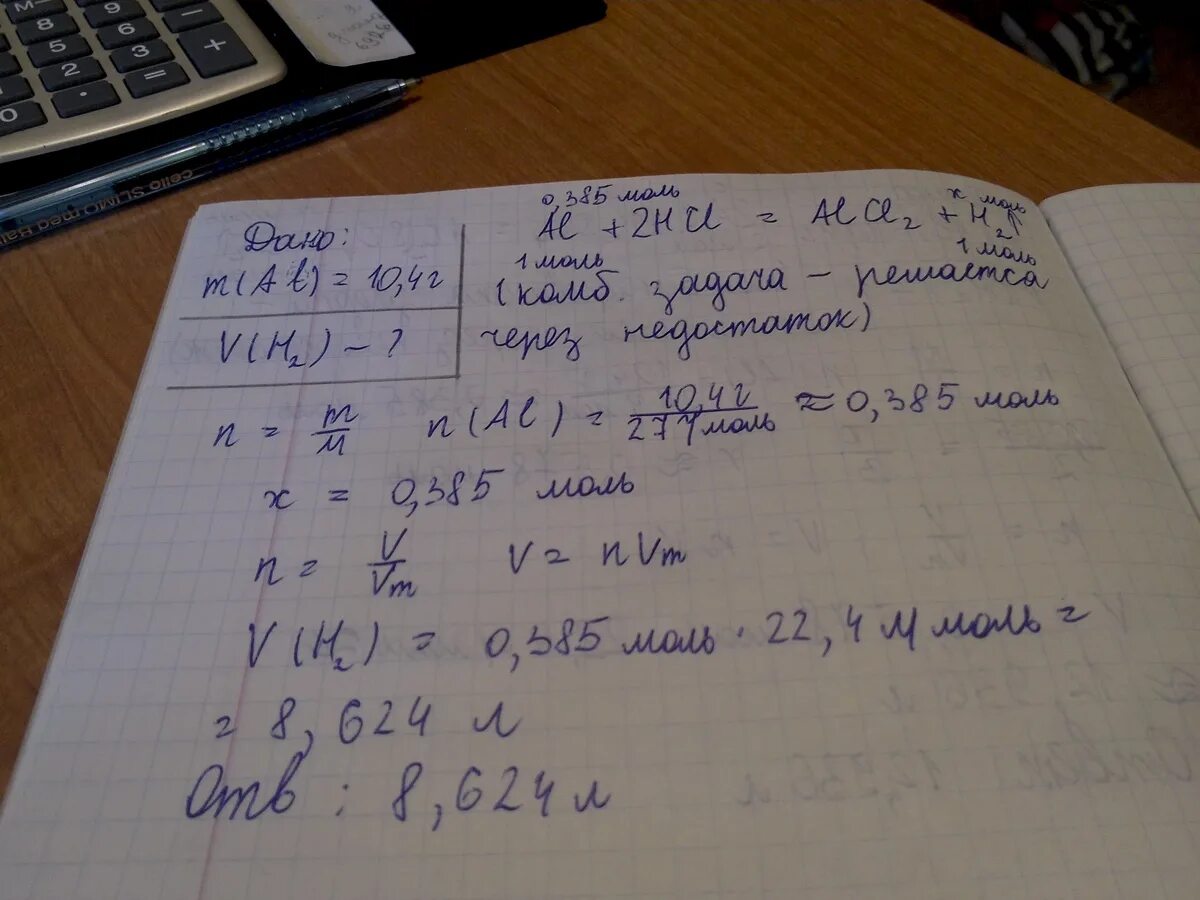 M-
8
9
-
5
6
+
2
3
0
.
=
cello SLIMO
0,385 моль
x моль
Al + 2HCl = AlCl₂ + H₂↑
1 моль
1 моль
Дано:
m(Al) = 10,4г
V(H₂) - ?
(комб. задача - решается
через недостаток)
n = m/M n(Al) = 10,4г/27г/моль ≈ 0,385 моль
x = 0,385 моль
n = V/Vm V = nVm
V(H₂) = 0,385 моль · 22,4 л/моль =
= 8,624 л
Отв : 8,624 л